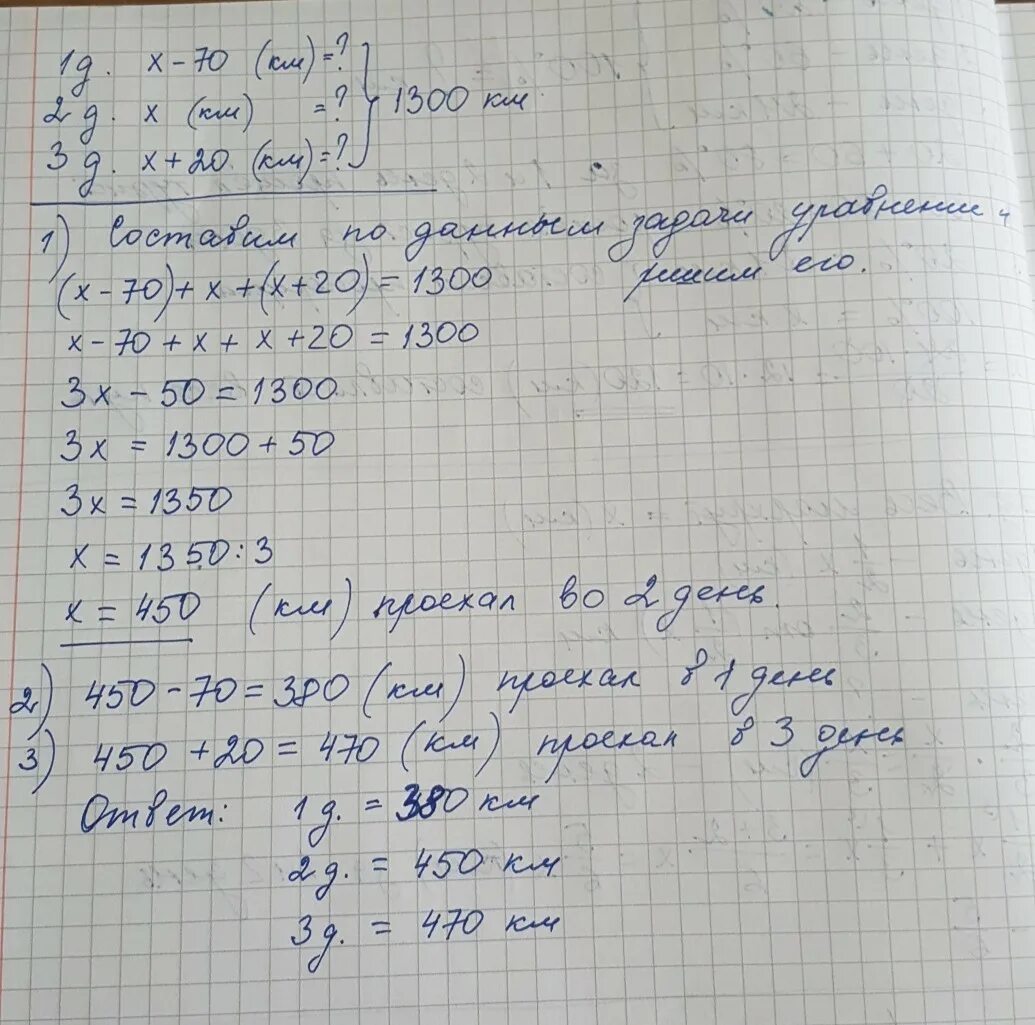 1д. x - 70 (км) = ?
2д. x (км) = ? 1300 км
3д. x + 20 (км) = ?
1) Составим по данным задачи уравнение и
решим его.
(x - 70) + x + (x + 20) = 1300
x - 70 + x + x + 20 = 1300
3x - 50 = 1300
3x = 1300 + 50
3x = 1350
x = 1350 : 3
x = 450 (км) проехал во 2 день.
2) 450 - 70 = 380 (км) проехал в 1 день
3) 450 + 20 = 470 (км) проехал в 3 день
Ответ: 1д. = 380 км
2д. = 450 км
3д. = 470 км